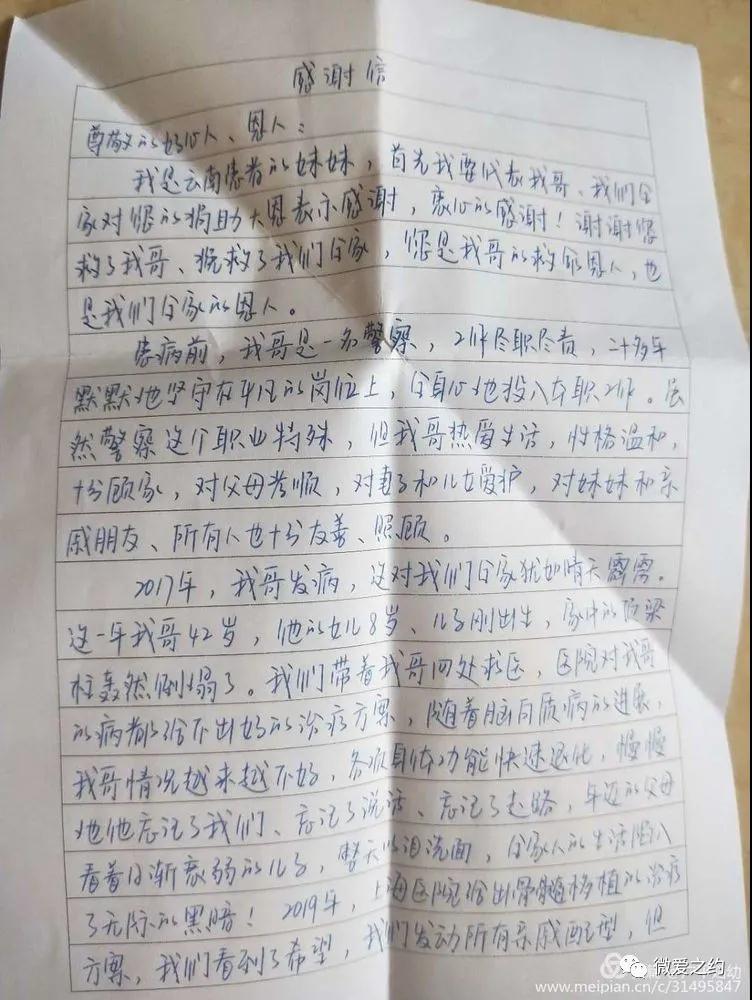 感谢信
尊敬的好心人、恩人：
我是云南患者的妹妹，首先我要代表我哥、我们全
家对您的捐助大恩表示感谢，衷心的感谢！谢谢您
救了我哥、挽救了我们全家，您是我哥的救命恩人，也
是我们全家的恩人。
患病前，我哥是一名警察，工作尽职尽责，二十多年
默默地坚守在平凡的岗位上，全身心地投入本职工作。虽
然警察这个职业特殊，但我哥热爱生活，性格温和，
十分顾家，对父母孝顺，对妻子和儿女爱护，对妹妹和亲
戚朋友、所有人也十分友善、照顾。
2017年，我哥发病，这对我们全家犹如晴天霹雳。
这一年我哥42岁，他的女儿8岁、儿子刚出生，家中的顶梁
柱轰然倒塌了。我们带着我哥四处求医，医院对我哥
的病都给不出好的治疗方案，随着脑白质病的进展，
我哥情况越来越不好，各项身体功能快速退化，慢慢
地他忘记了我们、忘记了说话、忘记了走路，年迈的父母
看着日渐衰弱的儿子，整天以泪洗面，全家人的生活陷入
了无际的黑暗！2019年，上海医院给出骨髓移植的治疗
方案，我们看到了希望，我们发动所有亲戚配型，但
微爱之约
www.meipian.cn/c/31495847